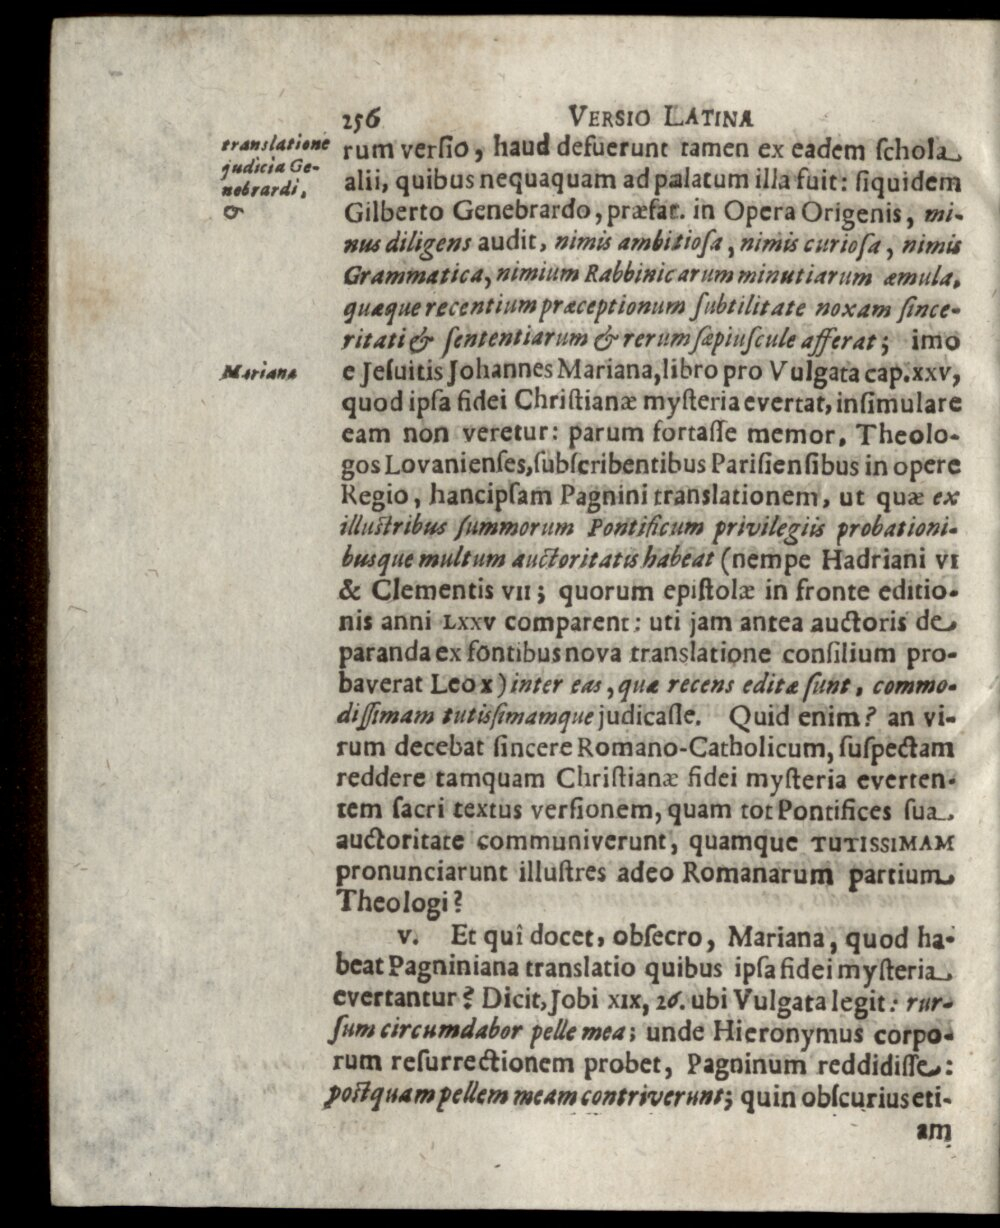 256 VERSIO LATINA
translatione
judicia Ge-
nebrardi,
&
rum versio, haud defuerunt tamen ex eadem schola
alii, quibus nequaquam ad palatum illa fuit: siquidem
Gilberto Genebrardo, præfat. in Opera Origenis, mi-
nus diligens audit, nimis ambitiosa, nimis curiosa, nimis
Grammatica, nimium Rabbinicarum minutiarum æmula,
quæque recentium præceptionum subtilitate noxam since-
ritati & sententiarum & rerum sæpiuscule afferat; imo
Mariana
e Jesuitis Johannes Mariana, libro pro Vulgata cap. xxv,
quod ipsa fidei Christianæ mysteria evertat, insimulare
eam non veretur: parum fortasse memor, Theolo-
gos Lovanienses, subscribentibus Parisiensibus in opere
Regio, hanc ipsam Pagnini translationem, ut quæ ex
illustribus summorum Pontificum privilegiis probationi-
busque multum auctoritatis habeat (nempe Hadriani VI
& Clementis VII; quorum epistolæ in fronte editio-
nis anni LXXV comparent: uti jam antea auctoris de
paranda ex fontibus nova translatione consilium pro-
baverat Leo X) inter eas, quæ recens editæ sunt, commo-
dissimam tutissimamque judicasse. Quid enim? an vi-
rum decebat sincere Romano-Catholicum, suspectam
reddere tamquam Christianæ fidei mysteria everten-
tem sacri textus versionem, quam tot Pontifices sua
auctoritate communiverunt, quamque TUTISSIMAM
pronunciarunt illustres adeo Romanarum partium
Theologi?
V. Et quî docet, obsecro, Mariana, quod ha-
beat Pagniniana translatio quibus ipsa fidei mysteria
evertantur? Dicit, Jobi XIX, 26. ubi Vulgata legit: rur-
sum circumdabor pelle mea; unde Hieronymus corpo-
rum resurrectionem probet, Pagninum reddidisse:
postquam pellem meam contriverunt; quin obscurius eti-
am